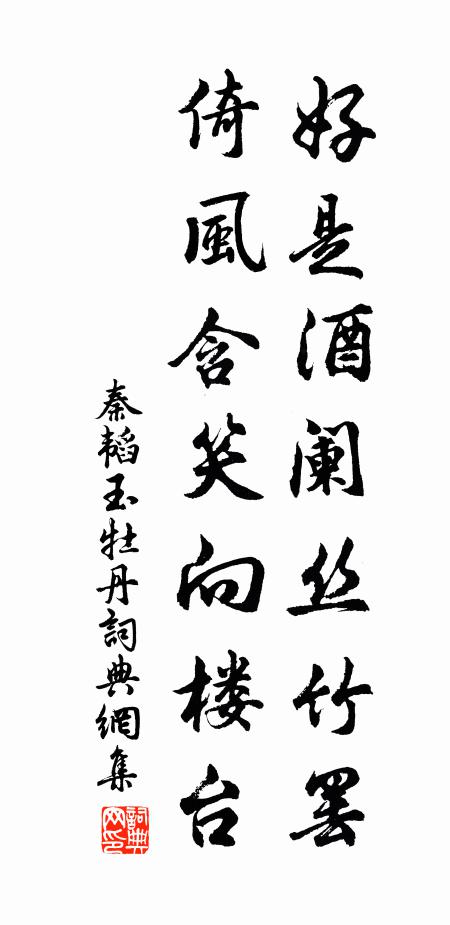 好是酒阑丝竹罢
倚風含笑向楼台
秦韬玉牡丹詞典網集
詞典网印